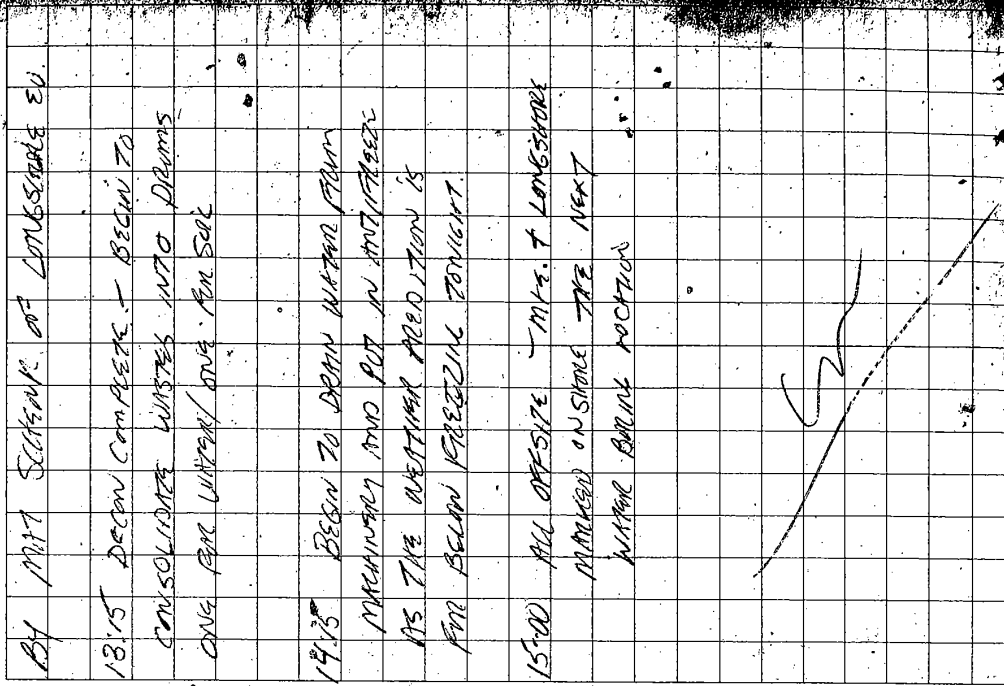 BY MAT SCHENK OF LONGSHORE EV.
13:15 DECON COMPLETE - BEGIN TO
CONSOLIDATE WASTES INTO DRUMS
ONE FOR WATER/ ONE FOR SOIL
14:15 BEGIN TO DRAIN WATER FROM
MACHINERY AND PUT IN ANTIFREEZE
AS THE WEATHER PREDITION IS
FOR BELOW FREEZING TONIGHT.
15:00 ALL OFFSITE - + LONGSHORE
MARKED ONSHORE THE NEXT
WATER BORING LOCATION